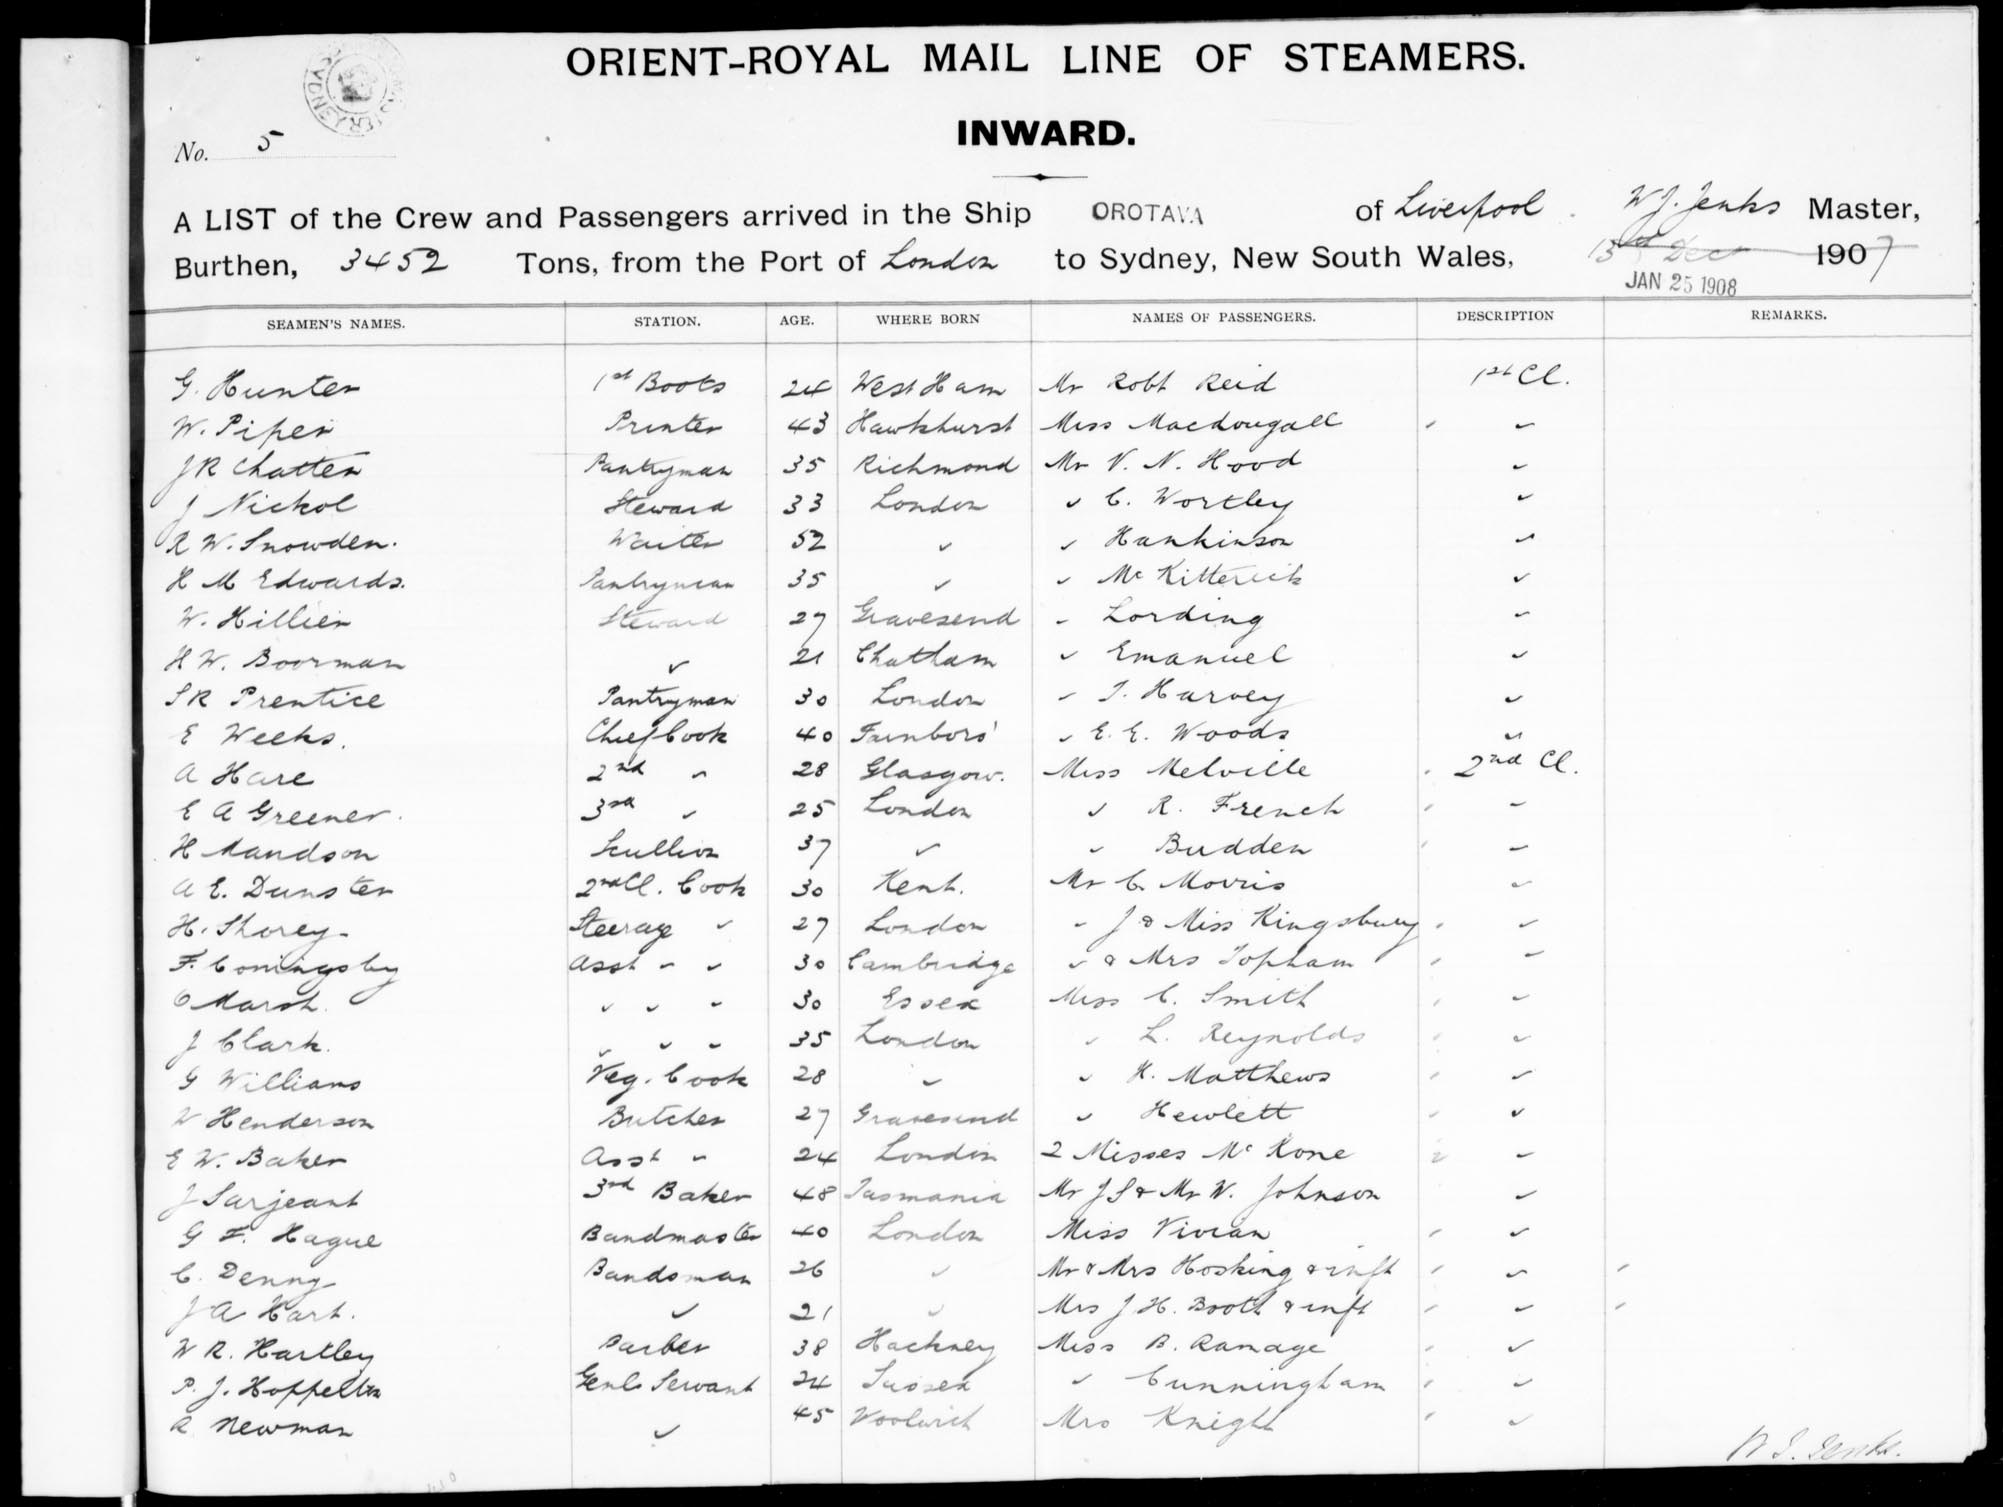 ORIENT-ROYAL MAIL LINE OF STEAMERS.
INWARD.
No. 5
A LIST of the Crew and Passengers arrived in the Ship OROTAVA of Liverpool W J. Jenks Master,
Burthen, 3452 Tons, from the Port of London to Sydney, New South Wales, 13th Dec 1907
JAN 25 1908
SEAMEN'S NAMES. STATION. AGE. WHERE BORN NAMES OF PASSENGERS. DESCRIPTION REMARKS.
G. Hunter 1st Boots 24 West Ham Mr Robt Reid 1st Cl.
W. Piper Printer 43 Hawkhurst Miss Macdougall "
J R Chatten Pantryman 35 Richmond Mr V. N. Hood "
J Nickol Steward 33 London " C. Wortley "
R W. Snowden. Waiter 52 " " Hankinson "
H M Edwards. Pantryman 35 " " Mc Kitterick "
W. Hillier Steward 27 Gravesend " Lording "
H W. Boorman " 21 Chatham " Emanuel "
S R Prentice Pantryman 30 London " T. Harvey "
E Weeks. Chief Cook 40 Farnboro' " E. E. Woods "
A Hare 2nd " 28 Glasgow. Miss Melville 2nd Cl.
E A Greener. 3rd " 25 London " R. French "
H Mandson Scullion 37 " " Budden "
A E. Dunster 2nd Cl. Cook 30 Kent. Mr C. Morris "
H. Shorey Steerage " 27 London " J & Miss Kingsbury "
F. Coningsby Asst " " 30 Cambridge " & Mrs Topham "
C Marsh. " " " 30 Essex Miss C. Smith "
J Clark. " " " 35 London " L. Reynolds "
G Williams Veg. Cook 28 " " H. Matthews "
W Henderson Butcher 27 Gravesend " Hewlett "
E W. Baker Asst " 24 London 2 Misses Mc Kone "
J Sarjeant 3rd Baker 48 Tasmania Mr J S & Mr W. Johnson "
G F. Hague Bandmaster 40 London Miss Vivian "
C. Denny Bandsman 26 " Mr & Mrs Hosking & inft "
J A Hart. " 21 " Mrs J H. Booth & inft "
W R. Hartley Barber 38 Hackney Miss B. Ramage "
P. J. Genl. Servant 24 Sussex " Cunningham "
R Newman " 45 Woolwich Mrs Knight "
W J. Jenks.